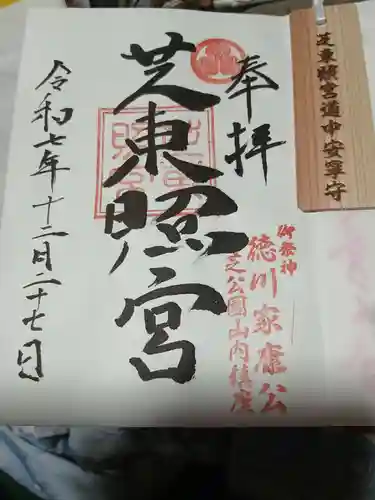 奉拝
芝東照宮
令和七年十二月二十七日
御祭神
徳川家康公
芝公園山内鎮座
芝東照宮道中安寧守